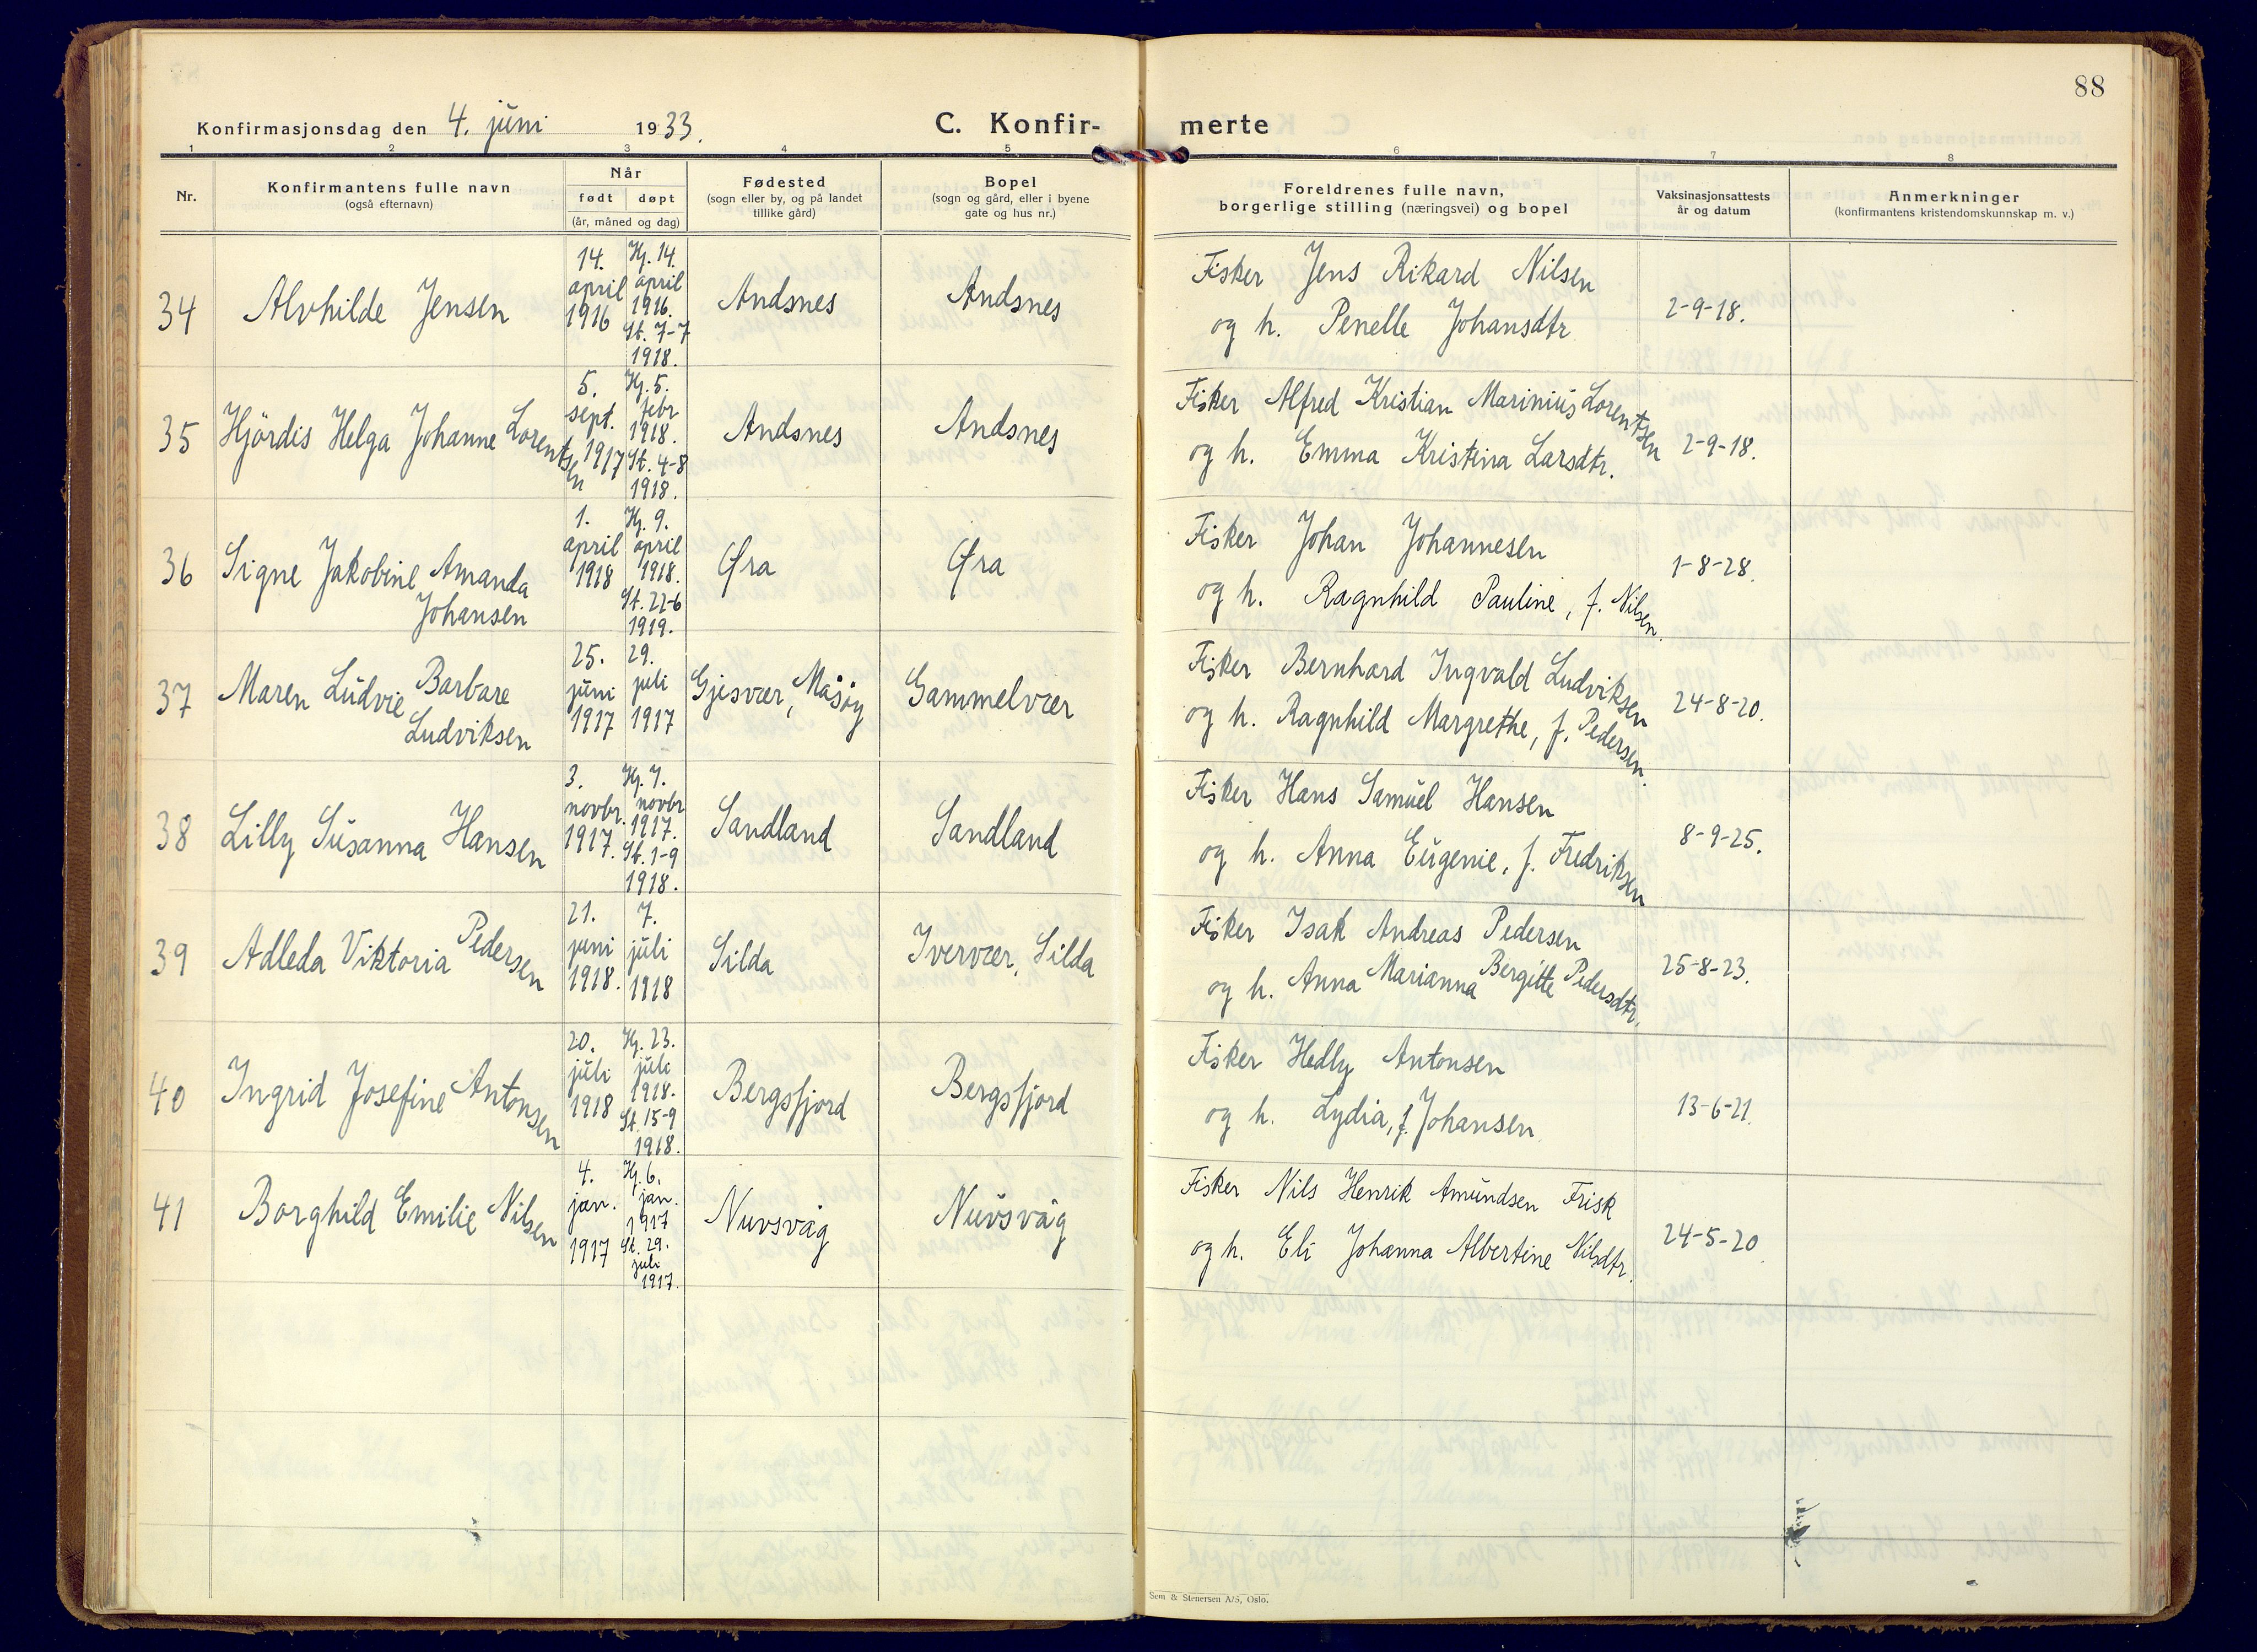 88
Konfirmasjonsdag den 4. juni 1933.
C. Konfir- merte
1 2 3 4 5 6 7 8
Nr.
Konfirmantens fulle navn
(også efternavn)
Når
født døpt
(år, måned og dag)
Fødested
(sogn eller by, og på landet
tillike gård)
Bopel
(sogn og gård, eller i byene
gate og hus nr.)
Foreldrenes fulle navn,
borgerlige stilling (næringsvei) og bopel
Vaksinasjonsattests
år og datum
Anmerkninger
(konfirmantens kristendomskunnskap m. v.)
34
Alvhilde Jensen
14.
april
1916
Hj. 14.
april
1916.
St. 7-7
1918.
Andsnes
Andsnes
Fisker Jens Rikard Nilsen
og h. Penelle Johansdtr
2-9-18.
35
Hjördis Helga Johanne Lorentsen
5.
sept.
1917
Hj. 5.
febr
1918.
St. 4-8
1918.
Andsnes
Andsnes
Fisker Alfred Kristian Marinius Lorentsen
og h. Emma Kristina Larsdtr.
2-9-18.
36
Signe Jakobine Amanda
Johansen
1.
april
1918
Hj. 9.
april
1918.
St. 22-6
1919.
Øra
Øra
Fisker Johan Johannesen
og h. Ragnhild Pauline, f. Nilsen.
1-8-28.
37
Maren Ludvie Barbare
Ludviksen
25.
juni
1917
29.
juli
1917
Gjesvær, Måsøy
Gammelvær
Fisker Bernhard Ingvald Ludviksen
og h. Ragnhild Margrethe, f. Pedersen.
24-8-20.
38
Lilly Susanna Hansen
3.
novbr.
1917.
Hj. 7.
novbr
1917.
St. 1-9
1918.
Sandland
Sandland
Fisker Hans Samuel Hansen
og h. Anna Eugenie, f. Fredriksen
8-9-25.
39
Adleda Viktoria Pedersen
21.
juni
1918.
7.
juli
1918
Silda
Ivervær, Silda
Fisker Isak Andreas Pedersen
og h. Anna Marianna Bergitte Pedersdtr.
25-8-23.
40
Ingrid Josefine Antonsen
20.
juli
1918
Hj. 23.
juli
1918.
St. 15-9
1918.
Bergsfjord
Bergsfjord
Fisker Hedly Antonsen
og h. Lydia, f. Johansen
13-6-21.
41
Borghild Emilie Nilsen
4.
jan.
1917
Hj. 6.
jan.
1917
St. 29.
juli
1917.
Nuvsvåg
Nuvsvåg
Fisker Nils Henrik Amundsen Frisk
og h. Eli Johanna Albertine Nilsdtr.
24-5-20
Sem & Stenersen A/S, Oslo.